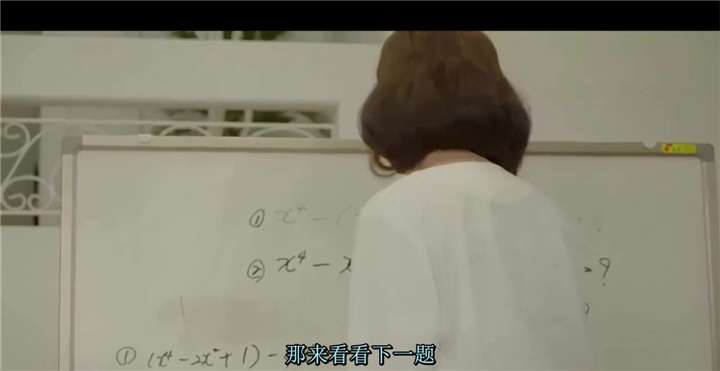 ① x⁴ - (
② x⁴ - x = ?
① (x⁴ - 2x² + 1) -
那来看看下一题